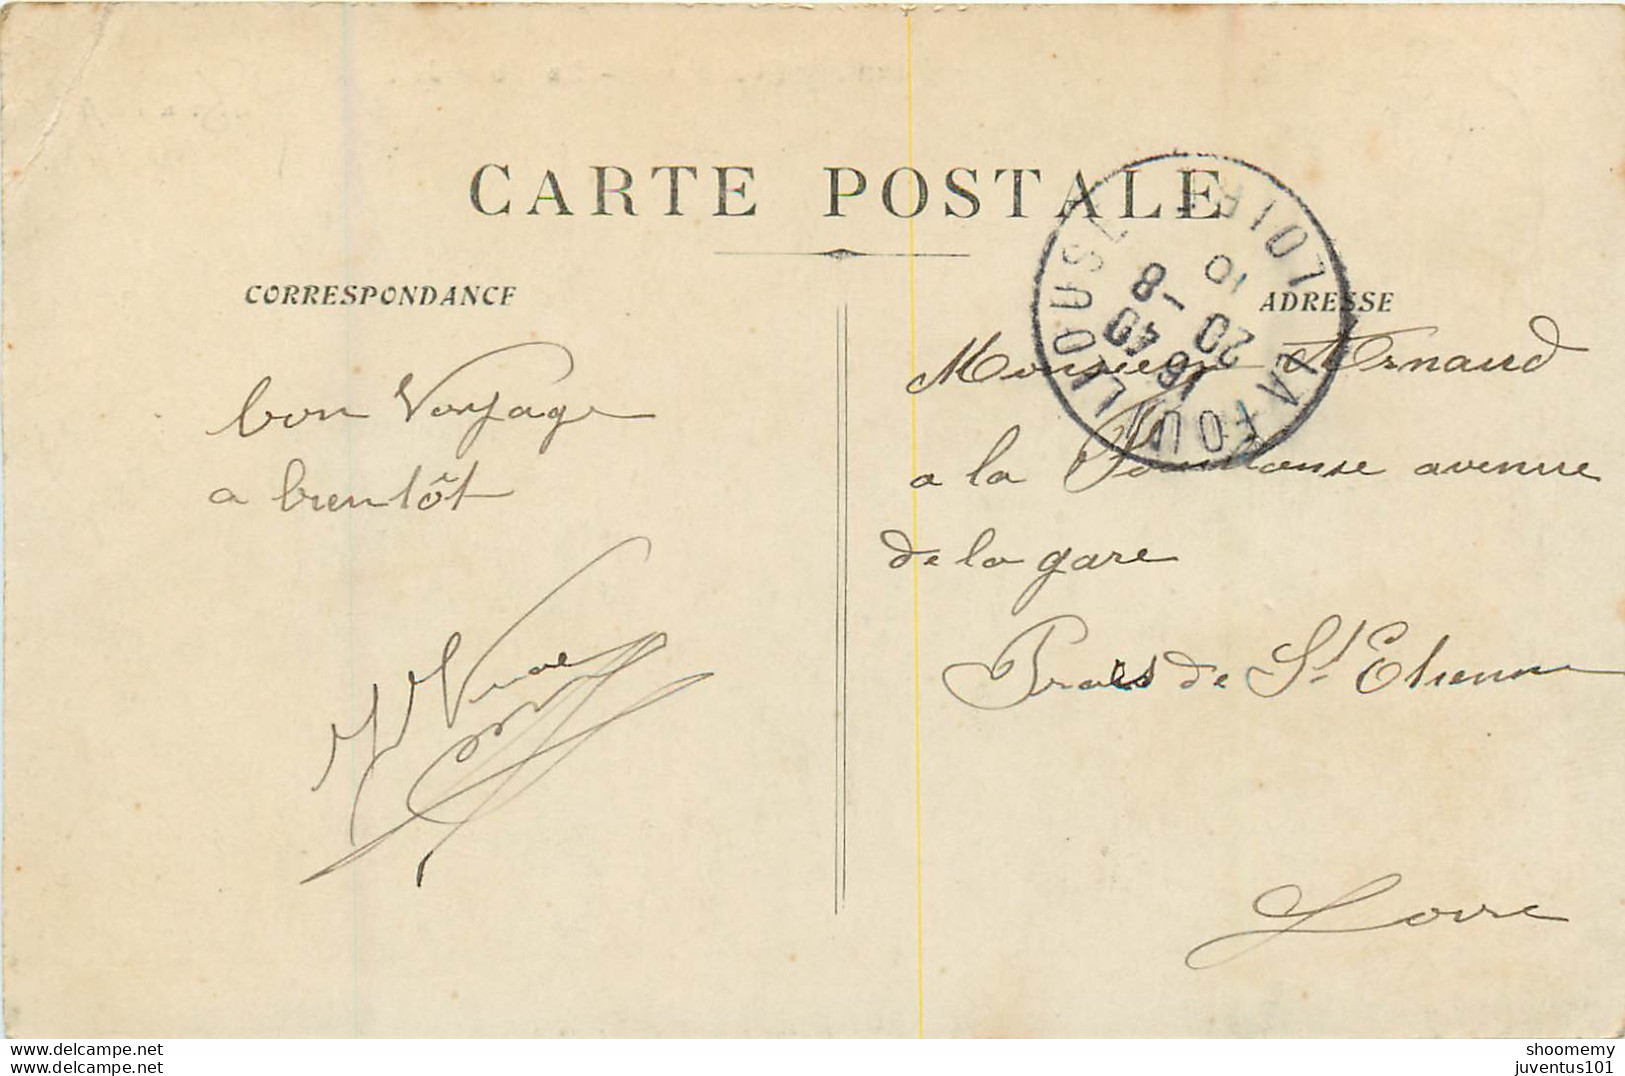 CARTE POSTALE
CORRESPONDANCE
bon Voyage
a bientôt
ADRESSE
Monsieur Arnaud
a la Fouillouse avenue
de la gare
Près de St Etienne
Loire
LA FOUILLOUSE
LOIRE
16 40
20 -8
10
www.delcampe.net
shoomemy
juventus101